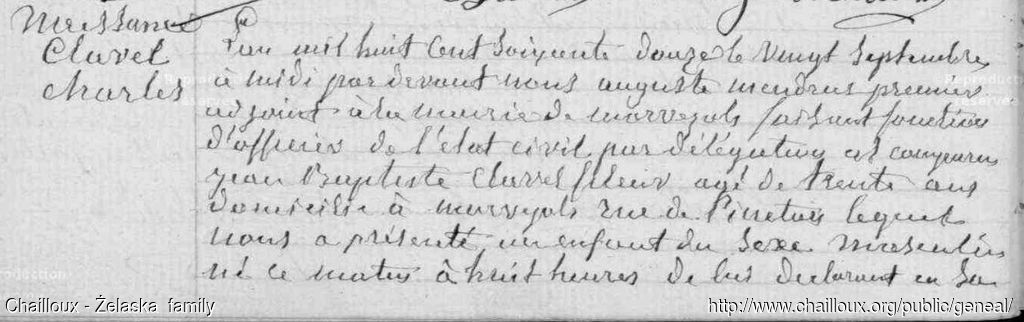 Naissance
Clavel
Charles
L'an mil huit cent soixante douze le vingt septembre
à midi par devant nous auguste mendras premier
adjoint à la mairie de marvejols faisant fonction
d'officier de l'état civil par délégation est comparu
jean Baptiste Clavel fileur agé de trente ans
domicilié à marvejols rue de lequel
nous a présenté un enfant du sexe masculin
né ce matin à huit heures de lui declarant en sa
Chailloux - Żelaska family
http://www.chailloux.org/public/geneal/